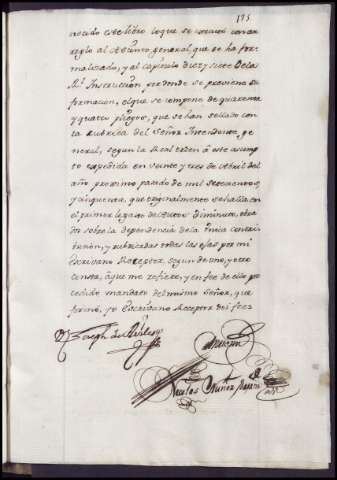 175
ducido este libro lo que se executó con arreglo
reglo al Asumto general, que se ha for
malizado, y al capitulo diez y siete de la
Rl. Instruccion por donde se previene su
formacion, el que se compone de quarenta
y quatro pliegos, que se han sellado con
la rubrica del Señor Intendente ge
neral, segun la Real orden à este asump
to expedida en veinte y tres de Abril del
año proximo pasado de mil setecientos,
y cinquenta, que originalmente se halla con
el primer legajo de Autos diminuta, obra
do sobre la dependencia de la Unica contri
bucion, y rubricadas todas las ojas por mi
Escribano Receptor, segun de uno, y otro
consta, à que me refiero, y en fee de ello pre
cedido mandato del mismo Señor, que
firmó, yo Escribano Receptor doi fee=
Dn Joseph de Aviles
Ante mi
Nicolas Nuñez